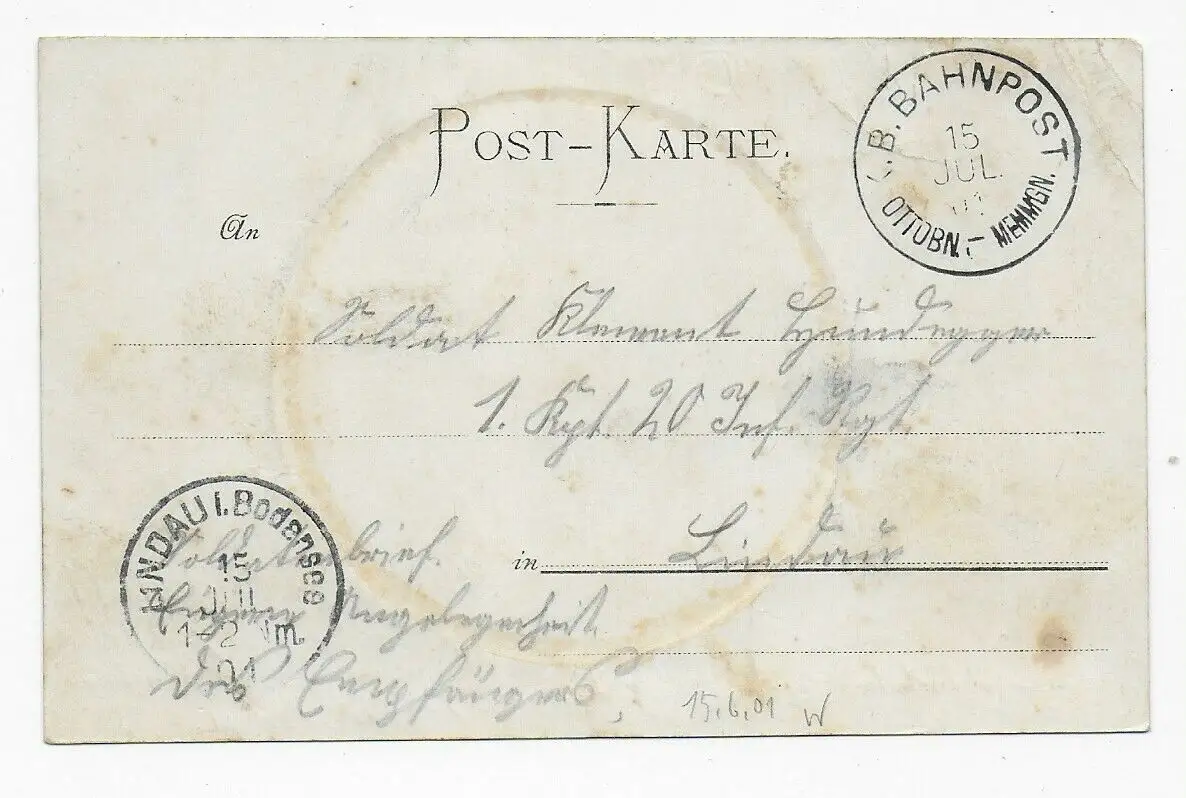 POST-KARTE.
K.B. BAHNPOST
15
JUL.
01
OTTOBN. - MEMMGN.
An
Soldat Klement Hundegger
1. Kgt. 20 Inf. Rgt.
in Lindau
LINDAU i. Bodensee
15
JUL
1-2 Nm.
01
Soldatenbrief.
Eigene Angelegenheit
des Empfängers
15.6.01 W